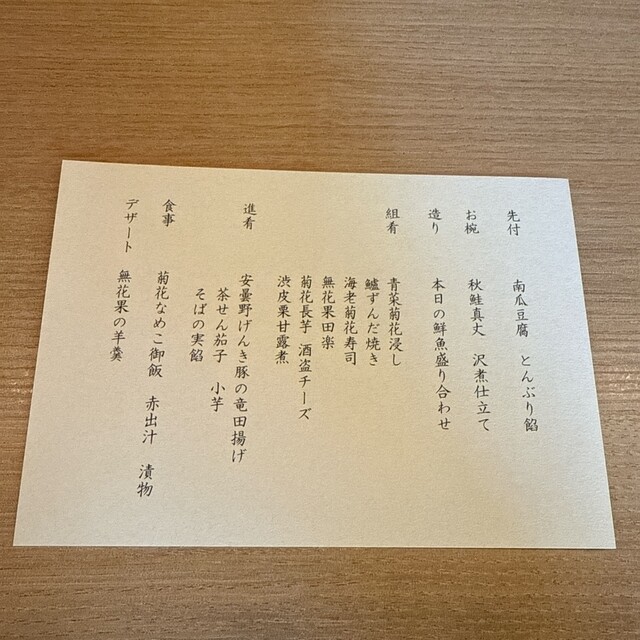 先付 南瓜豆腐 とんぶり餡
お椀 秋鮭真丈 沢煮仕立て
造り 本日の鮮魚盛り合わせ
組肴 青菜菊花浸し
鱸ずんだ焼き
海老菊花寿司
無花果田楽
菊花長芋 酒盗チーズ
渋皮栗甘露煮
進肴 安曇野げんき豚の竜田揚げ
茶せん茄子 小芋
そばの実餡
食事 菊花なめこ御飯 赤出汁 漬物
デザート 無花果の羊羹